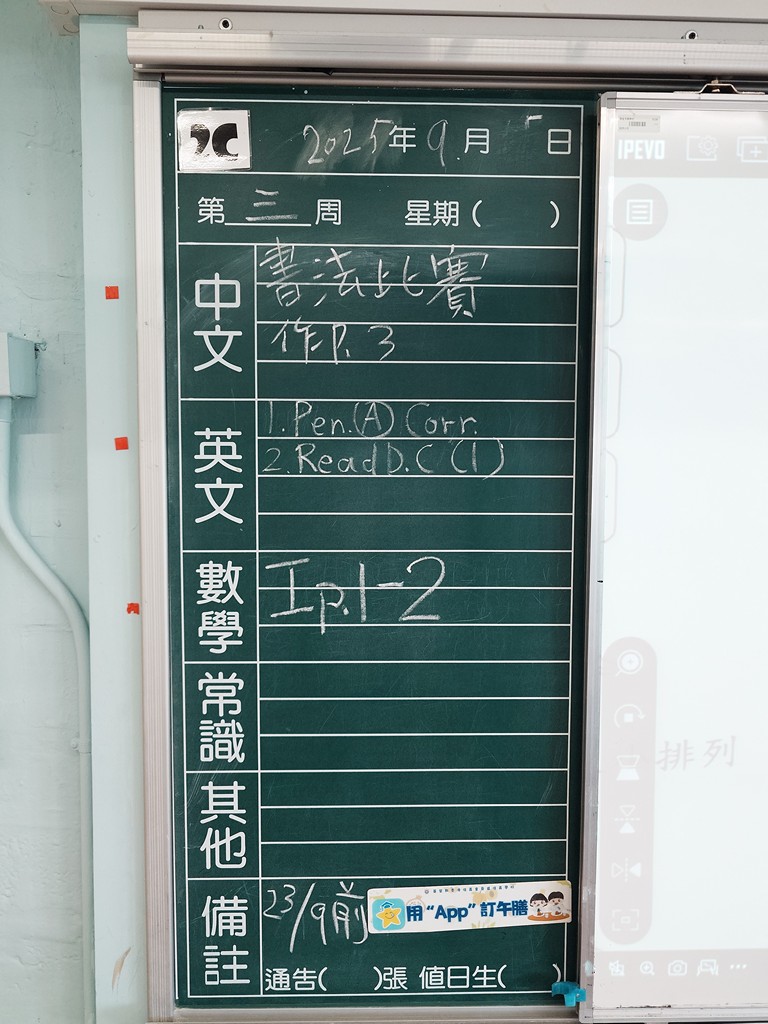 2C
2025年9月 日
第三周 星期( )
中文
書法比賽
作P. 3
英文
1. Pen. (A) Corr.
2. Read D.C (1)
數學
工p.1-2
常識
其他
備註
23/9前
用 “App” 訂午膳
通告( )張 值日生( )
IPEVO
排列